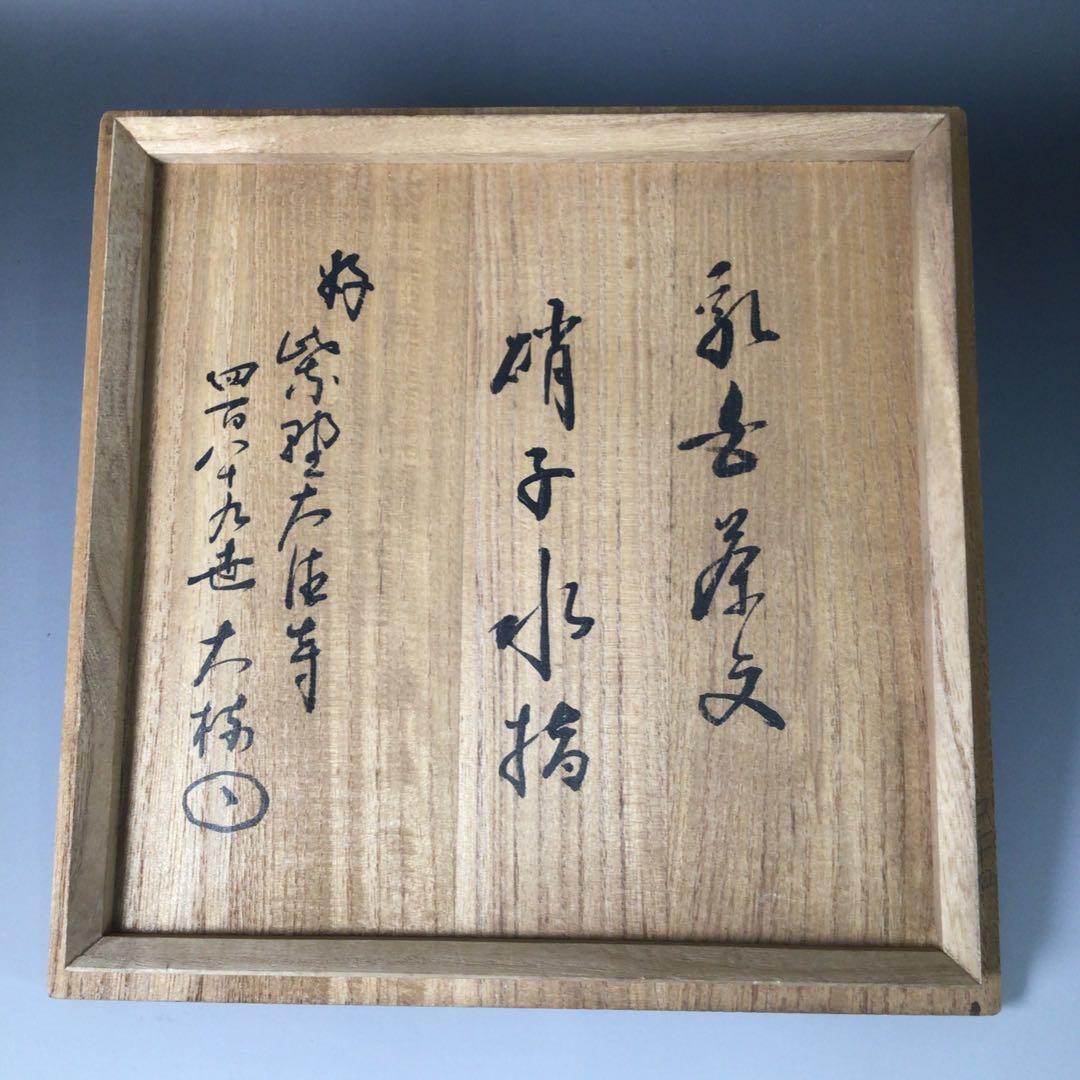 乳茶文
硝子水指
好 紫野大徳寺
四百八十九世